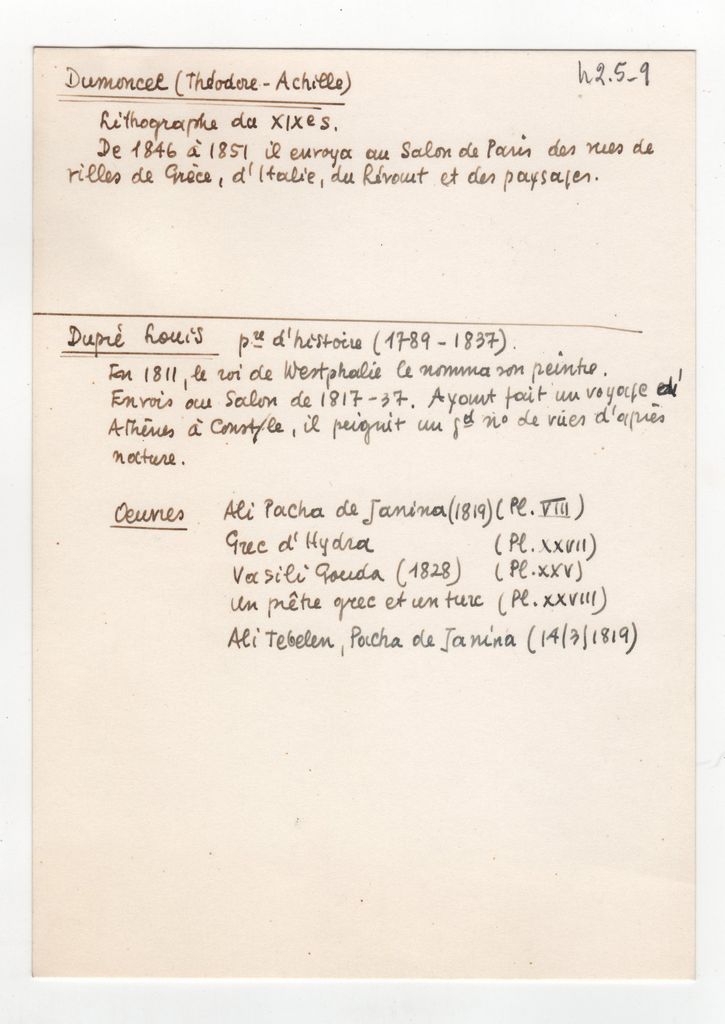 Dumoncel (Théodore-Achille)
h2.5-9
Lithographe du XIXe s.
De 1846 à 1851 il envoya au Salon de Paris des vues de
villes de Grèce, d'Italie, du Lévant et des paysages.
Dupré Louis pre d'histoire (1789-1837).
En 1811, le roi de Westphalie le nomma son peintre.
Envois au Salon de 1817-37. Ayant fait un voyage d'
Athènes à Const/ple, il peignit un gd no de vues d'après
nature.
Oeuvres Ali Pacha de Janina (1819) (Pl. VIII)
Grec d'Hydra (Pl. XXVII)
Vasili Gouda (1828) (Pl. XXV)
un prêtre grec et un turc (Pl. XXVIII)
Ali Tebelen, Pacha de Janina (14/3/1819)